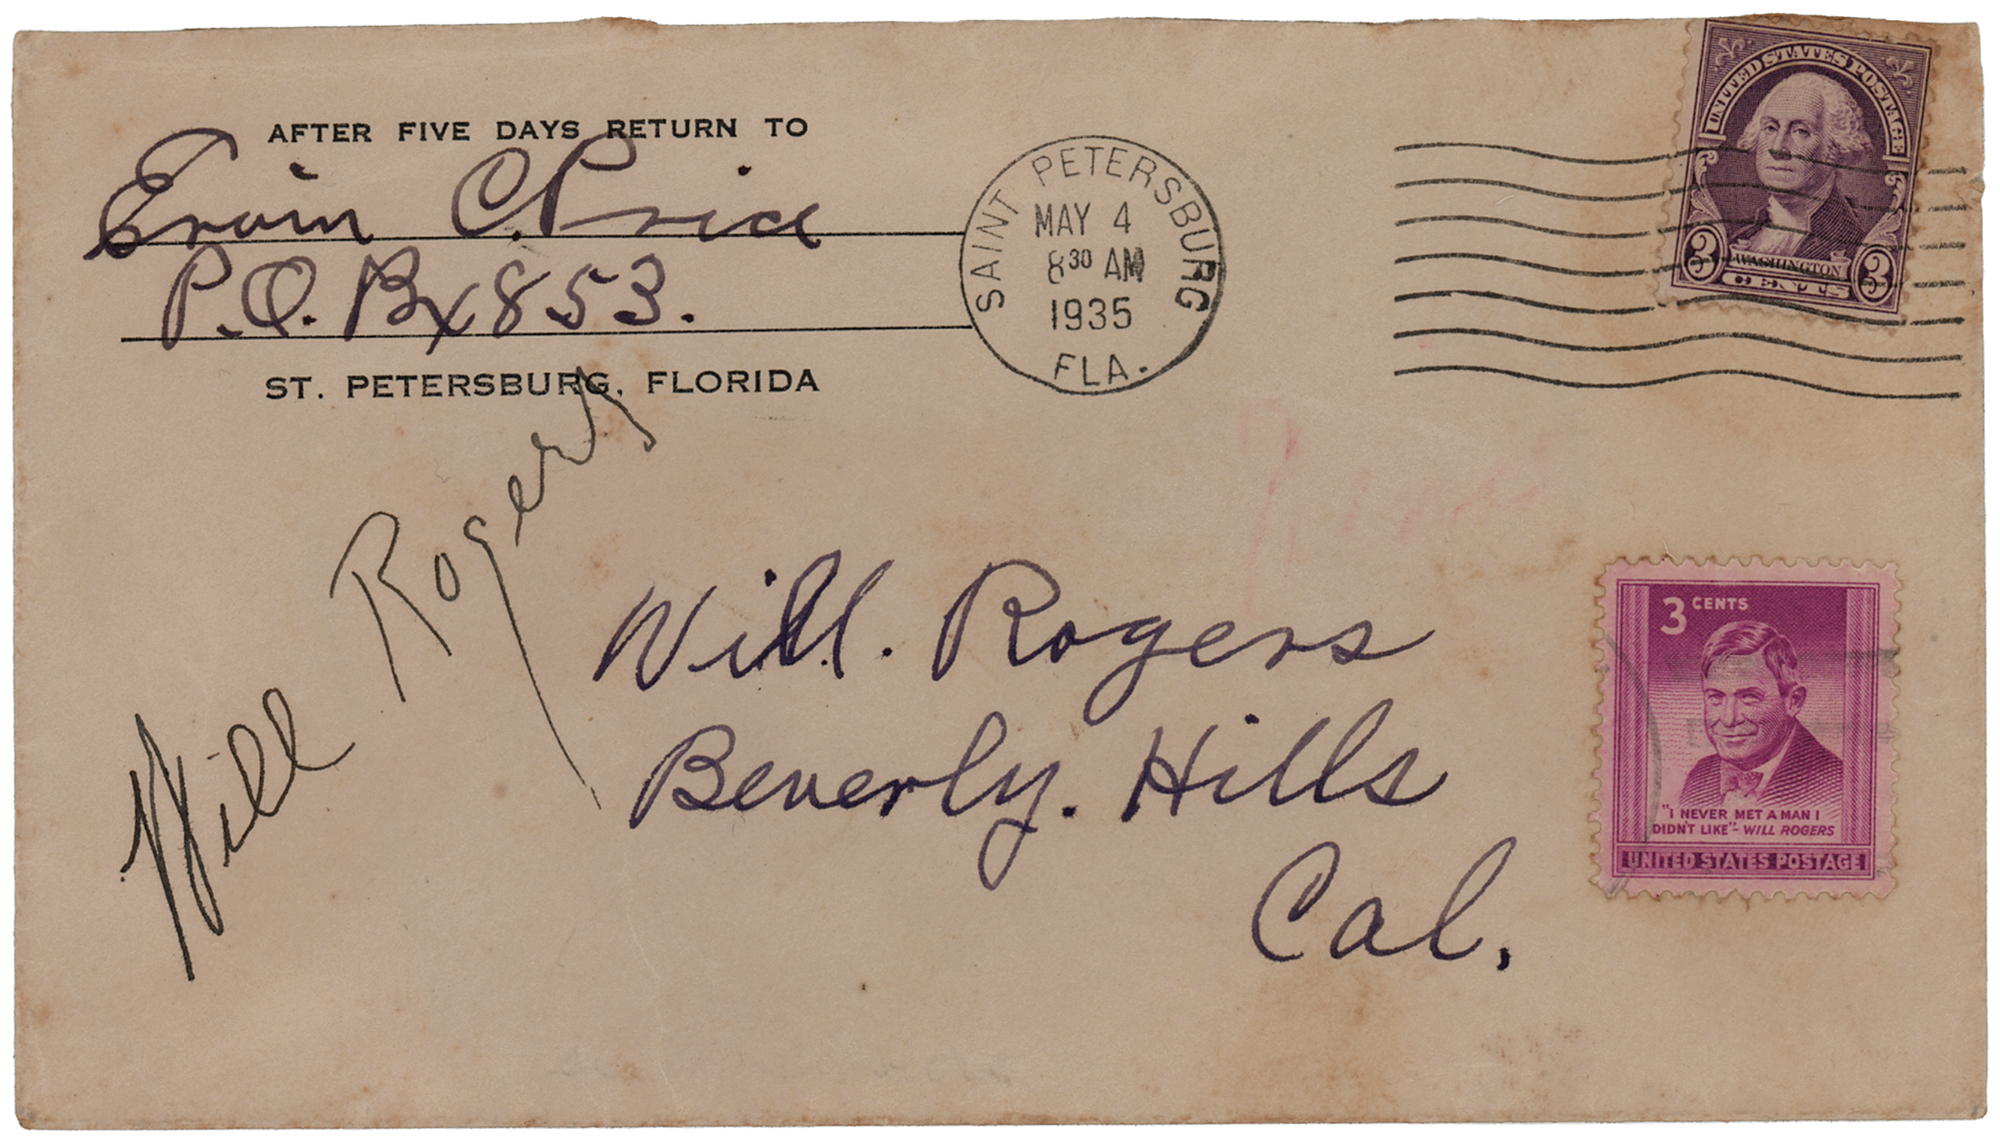 AFTER FIVE DAYS RETURN TO
Ervin C. Price
P.O. Bx 853.
ST. PETERSBURG, FLORIDA
SAINT PETERSBURG
MAY 4
8 30 AM
1935
FLA.
UNITED STATES POSTAGE
3 WASHINGTON 3
CENTS
Will Rogers
Will. Rogers
Beverly. Hills
Cal.
3 CENTS
"I NEVER MET A MAN I
DIDN'T LIKE" - WILL ROGERS
UNITED STATES POSTAGE